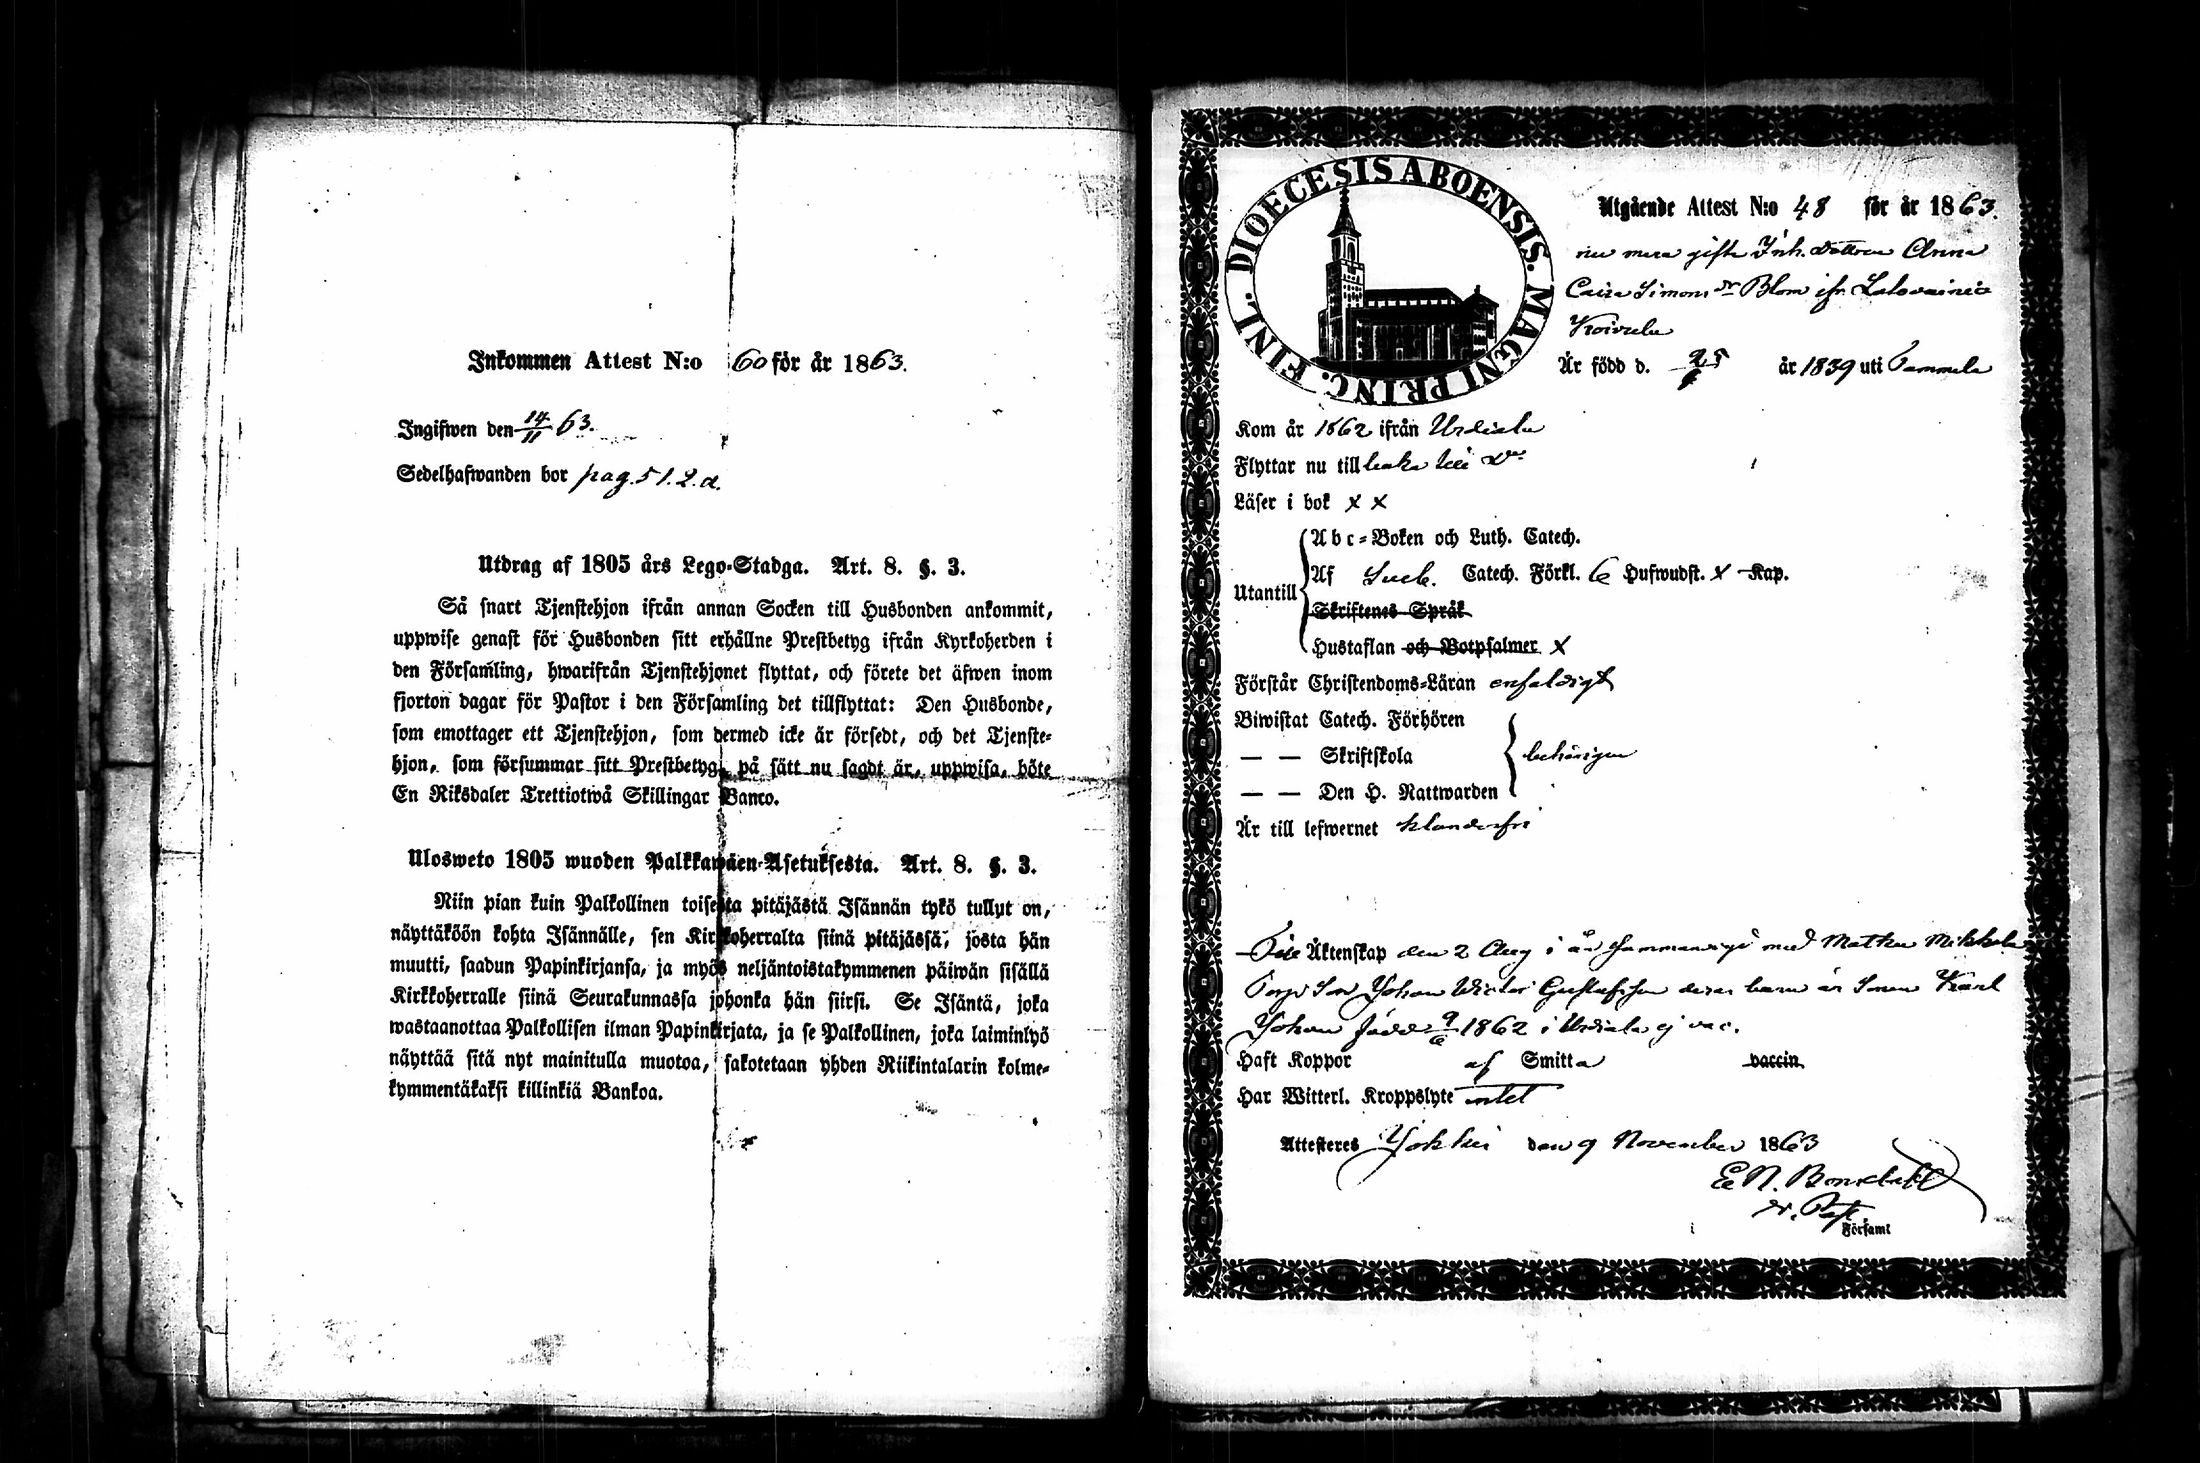 Inkommen Attest N:o 60 för år 1863.
Ingifwen den 14/11 63.
Sedelhafwanden bor pag. 51. 2. d.
Utdrag af 1805 års Lego-Stadga. Art. 8. §. 3.
Så snart Tjenstehjon ifrån annan Socken till Husbonden ankommit,
uppwise genast för Husbonden sitt erhållne Prestbetyg ifrån Kyrkoherden i
den Församling, hwarifrån Tjenstehjonet flyttat, och förete det äfwen inom
fjorton dagar för Pastor i den Församling det tillflyttat: Den Husbonde,
som emottager ett Tjenstehjon, som dermed icke är försedt, och det Tjenste-
hjon, som försummar sitt Prestbetyg, på sätt nu sagdt är, uppwisa, böte
En Riksdaler Trettiotwå Skillingar Banco.
Ulosweto 1805 wuoden Palkkawäen-Asetuksesta. Art. 8. §. 3.
Niin pian kuin Palkollinen toisesta pitäjästä Isännän tykö tullut on,
näyttäköön kohta Isännälle, sen Kirkkoherralta siinä pitäjässä, josta hän
muutti, saadun Papinkirjansa, ja myös neljäntoistakymmenen päiwän sisällä
Kirkkoherralle siinä Seurakunnassa johonka hän siirsi. Se Isäntä, joka
wastaanottaa Palkollisen ilman Papinkirjata, ja se Palkollinen, joka laiminlyö
näyttää sitä nyt mainitulla muotoa, sakotetaan yhden Riikintalarin kolme-
kymmentäkaksi killinkiä Bankoa.
DIOECESIS ABOENSIS. MAGNI PRINC. FINL.
Utgående Attest N:o 48 för år 1863.
nu mera gifta Inh. Dottren Anna
Caisa Simons dr Blom ifr.
Är född d. 25 år 1839 uti Tammela
Kom år 1862 ifrån Urdiala
Flyttar nu till baka till Do
Läser i bok x x
Abc-Boken och Luth. Catech.
Utantill Af Sveb. Catech. Förkl. 6 Hufwudst. x Kap.
Skriftenes Språk
Hustaflan och Botpsalmer x
Förstår Christendoms-Läran enfaldigt
Biwistat Catech. Förhören
— — Skriftskola behörigen
— — Den H. Nattwarden
Är till lefwernet klanderfri
Äktenskap den 2 Aug i år sammanvigd med Matku Mikkola
Torp Son Johan Victor Gustafsson deras barn är Sonen Karl
Johan född 9/6 1862 i Urdiala ej vac.
Haft Koppor af Smitta vaccin.
Har Witterl. Kroppslyte intet
Attesteres Jokkis den 9 November 1863
v. Past
Församl